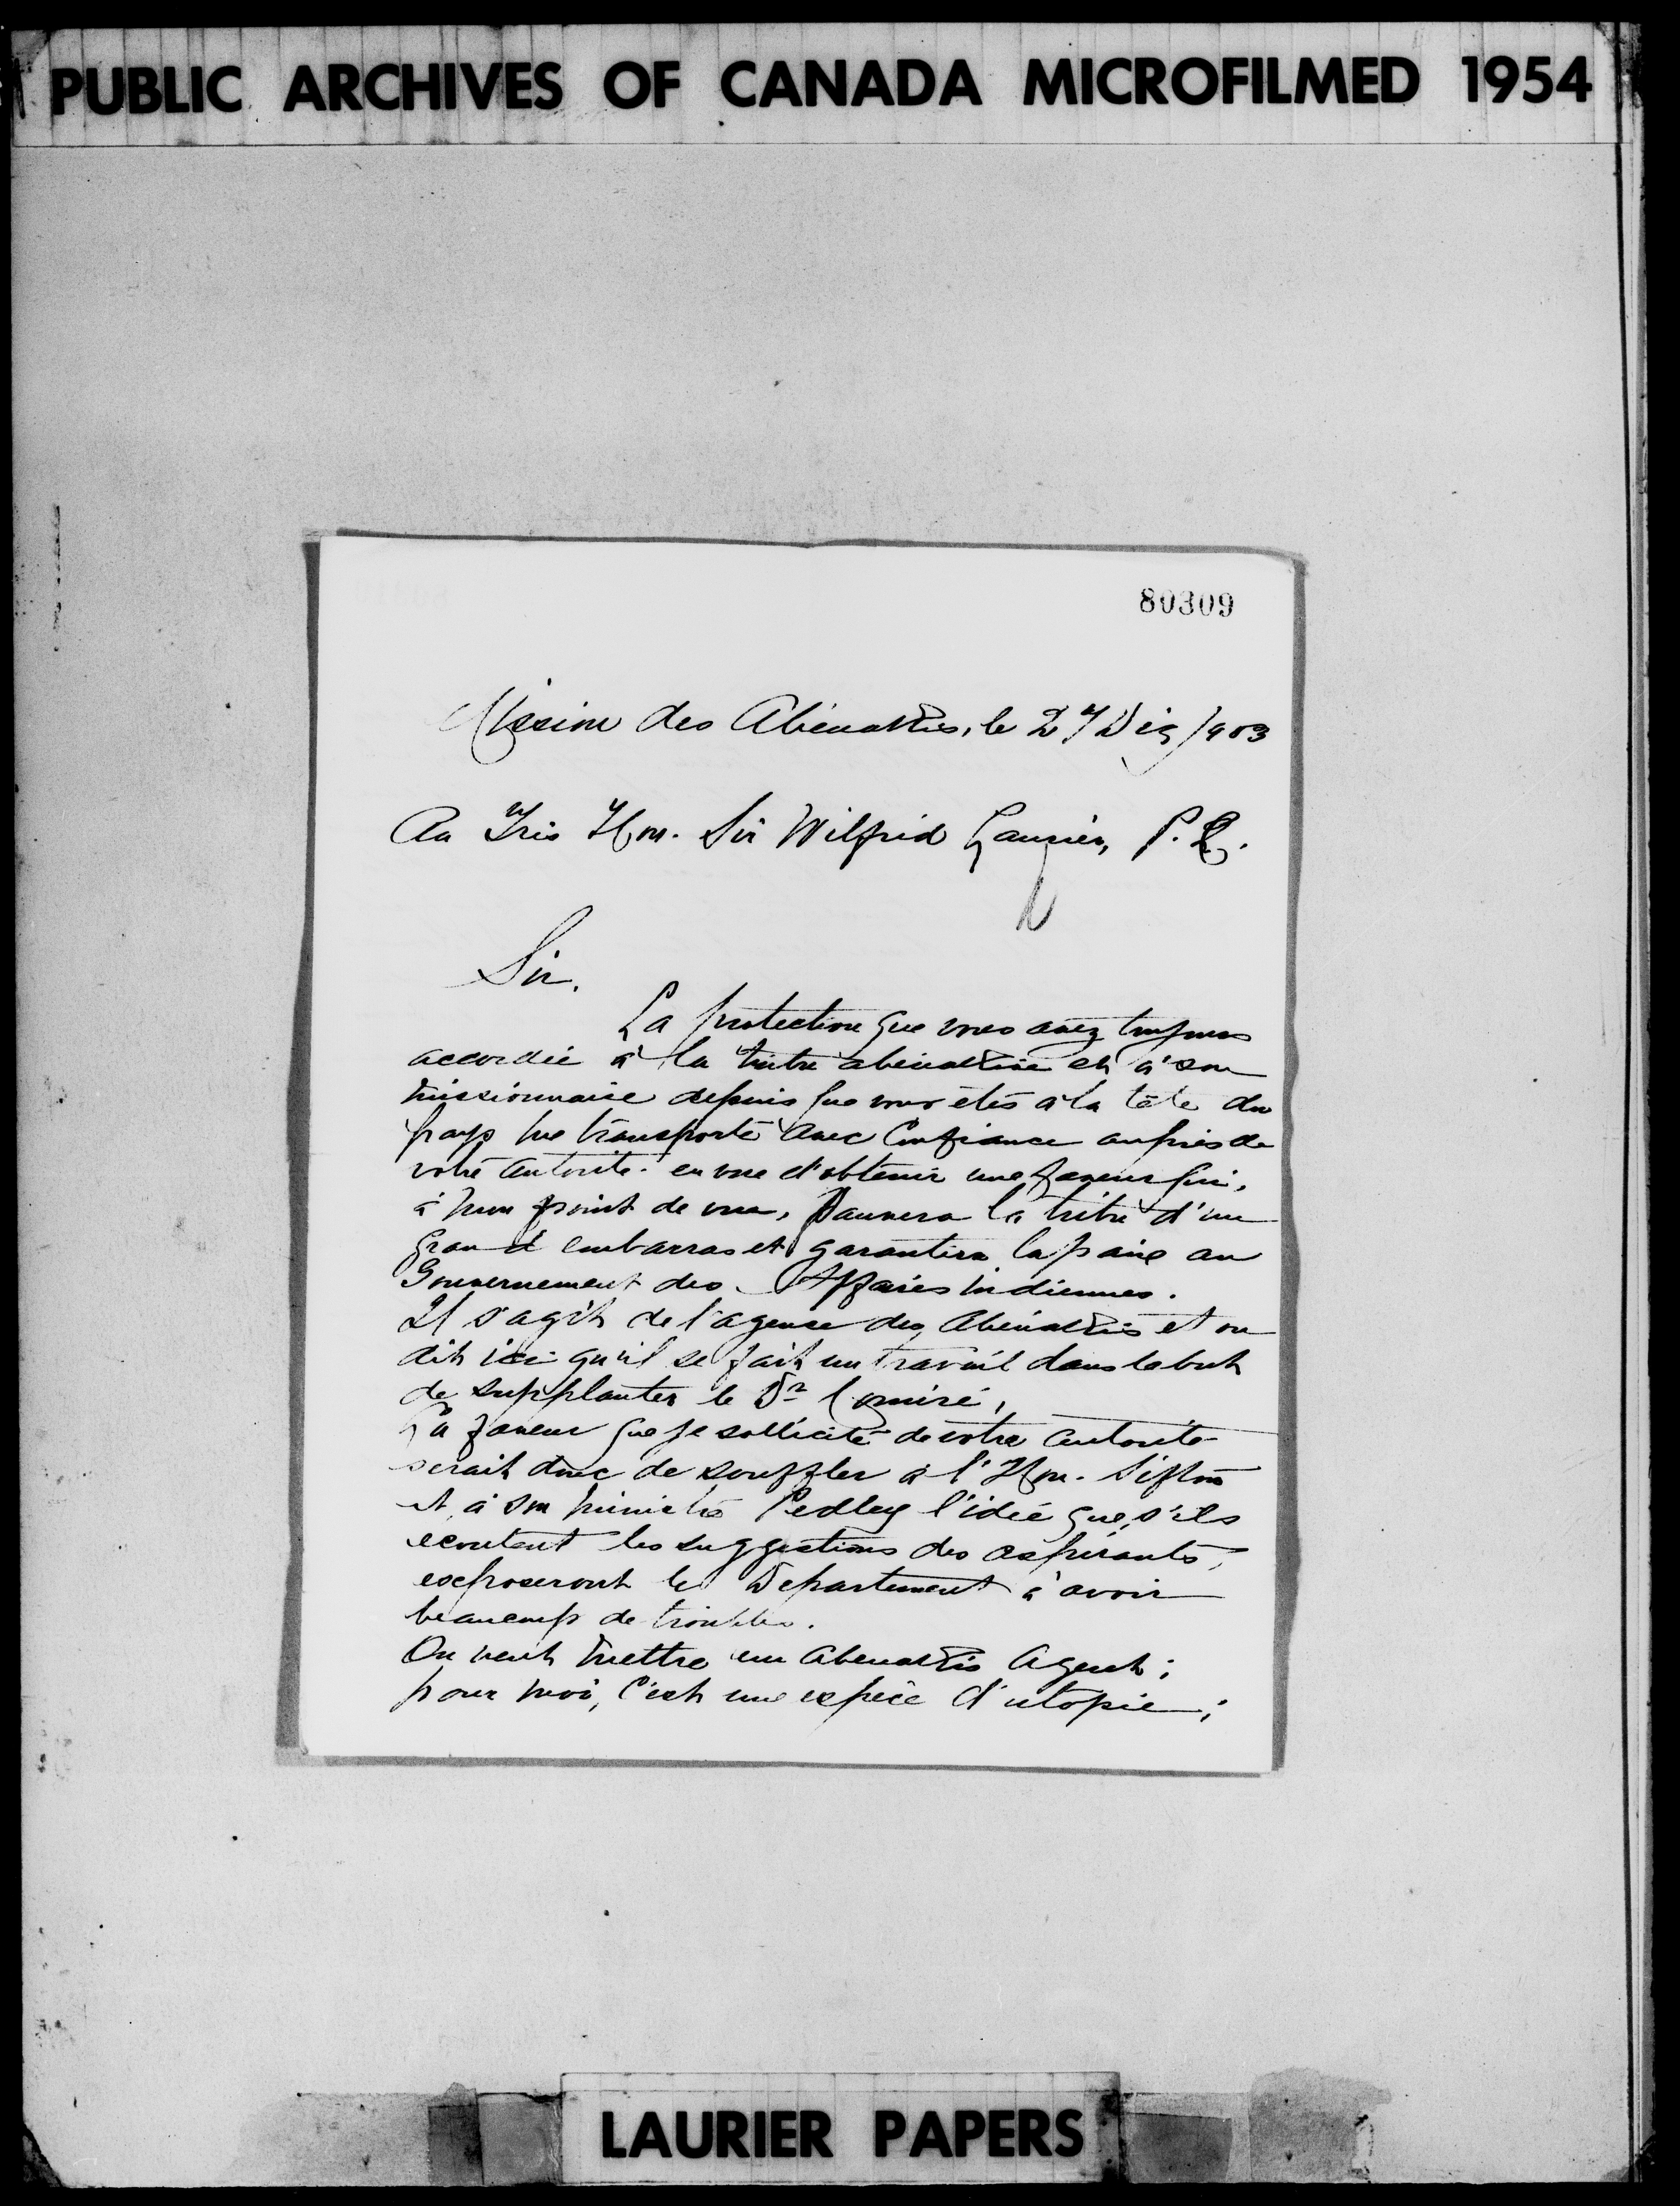 PUBLIC ARCHIVES OF CANADA MICROFILMED 1954
80309
Mission des Abénakis, le 27 Déc 1903
Au Très Hon. Sir Wilfrid Laurier, P.
Sir,
La protection que vous avez toujours
accordée à la tribu abénakise et à son
missionnaire depuis que vous êtes à la tête du
pays me transporte avec confiance auprès de
votre autorité en vue d'obtenir une faveur qui,
à mon point de vue, sauvera la tribu d'un
grand embarras et garantira la paix au
Gouvernement des Affaires indiennes.
Il s'agit de l'agence des Abénakis et on
dit ici qu'il se fait un travail dans le but
de supplanter le Dr Comiré,
La faveur que je sollicite de votre autorité
serait donc de souffler à l'Hon. Sifton
et à son ministre Pedley l'idée que, s'ils
écoutent les suggestions des aspirants,
exposeront le Département à avoir
beaucoup de troubles.
On veut mettre un Abénakis Agent;
pour moi, c'est une espèce d'utopie;
LAURIER PAPERS